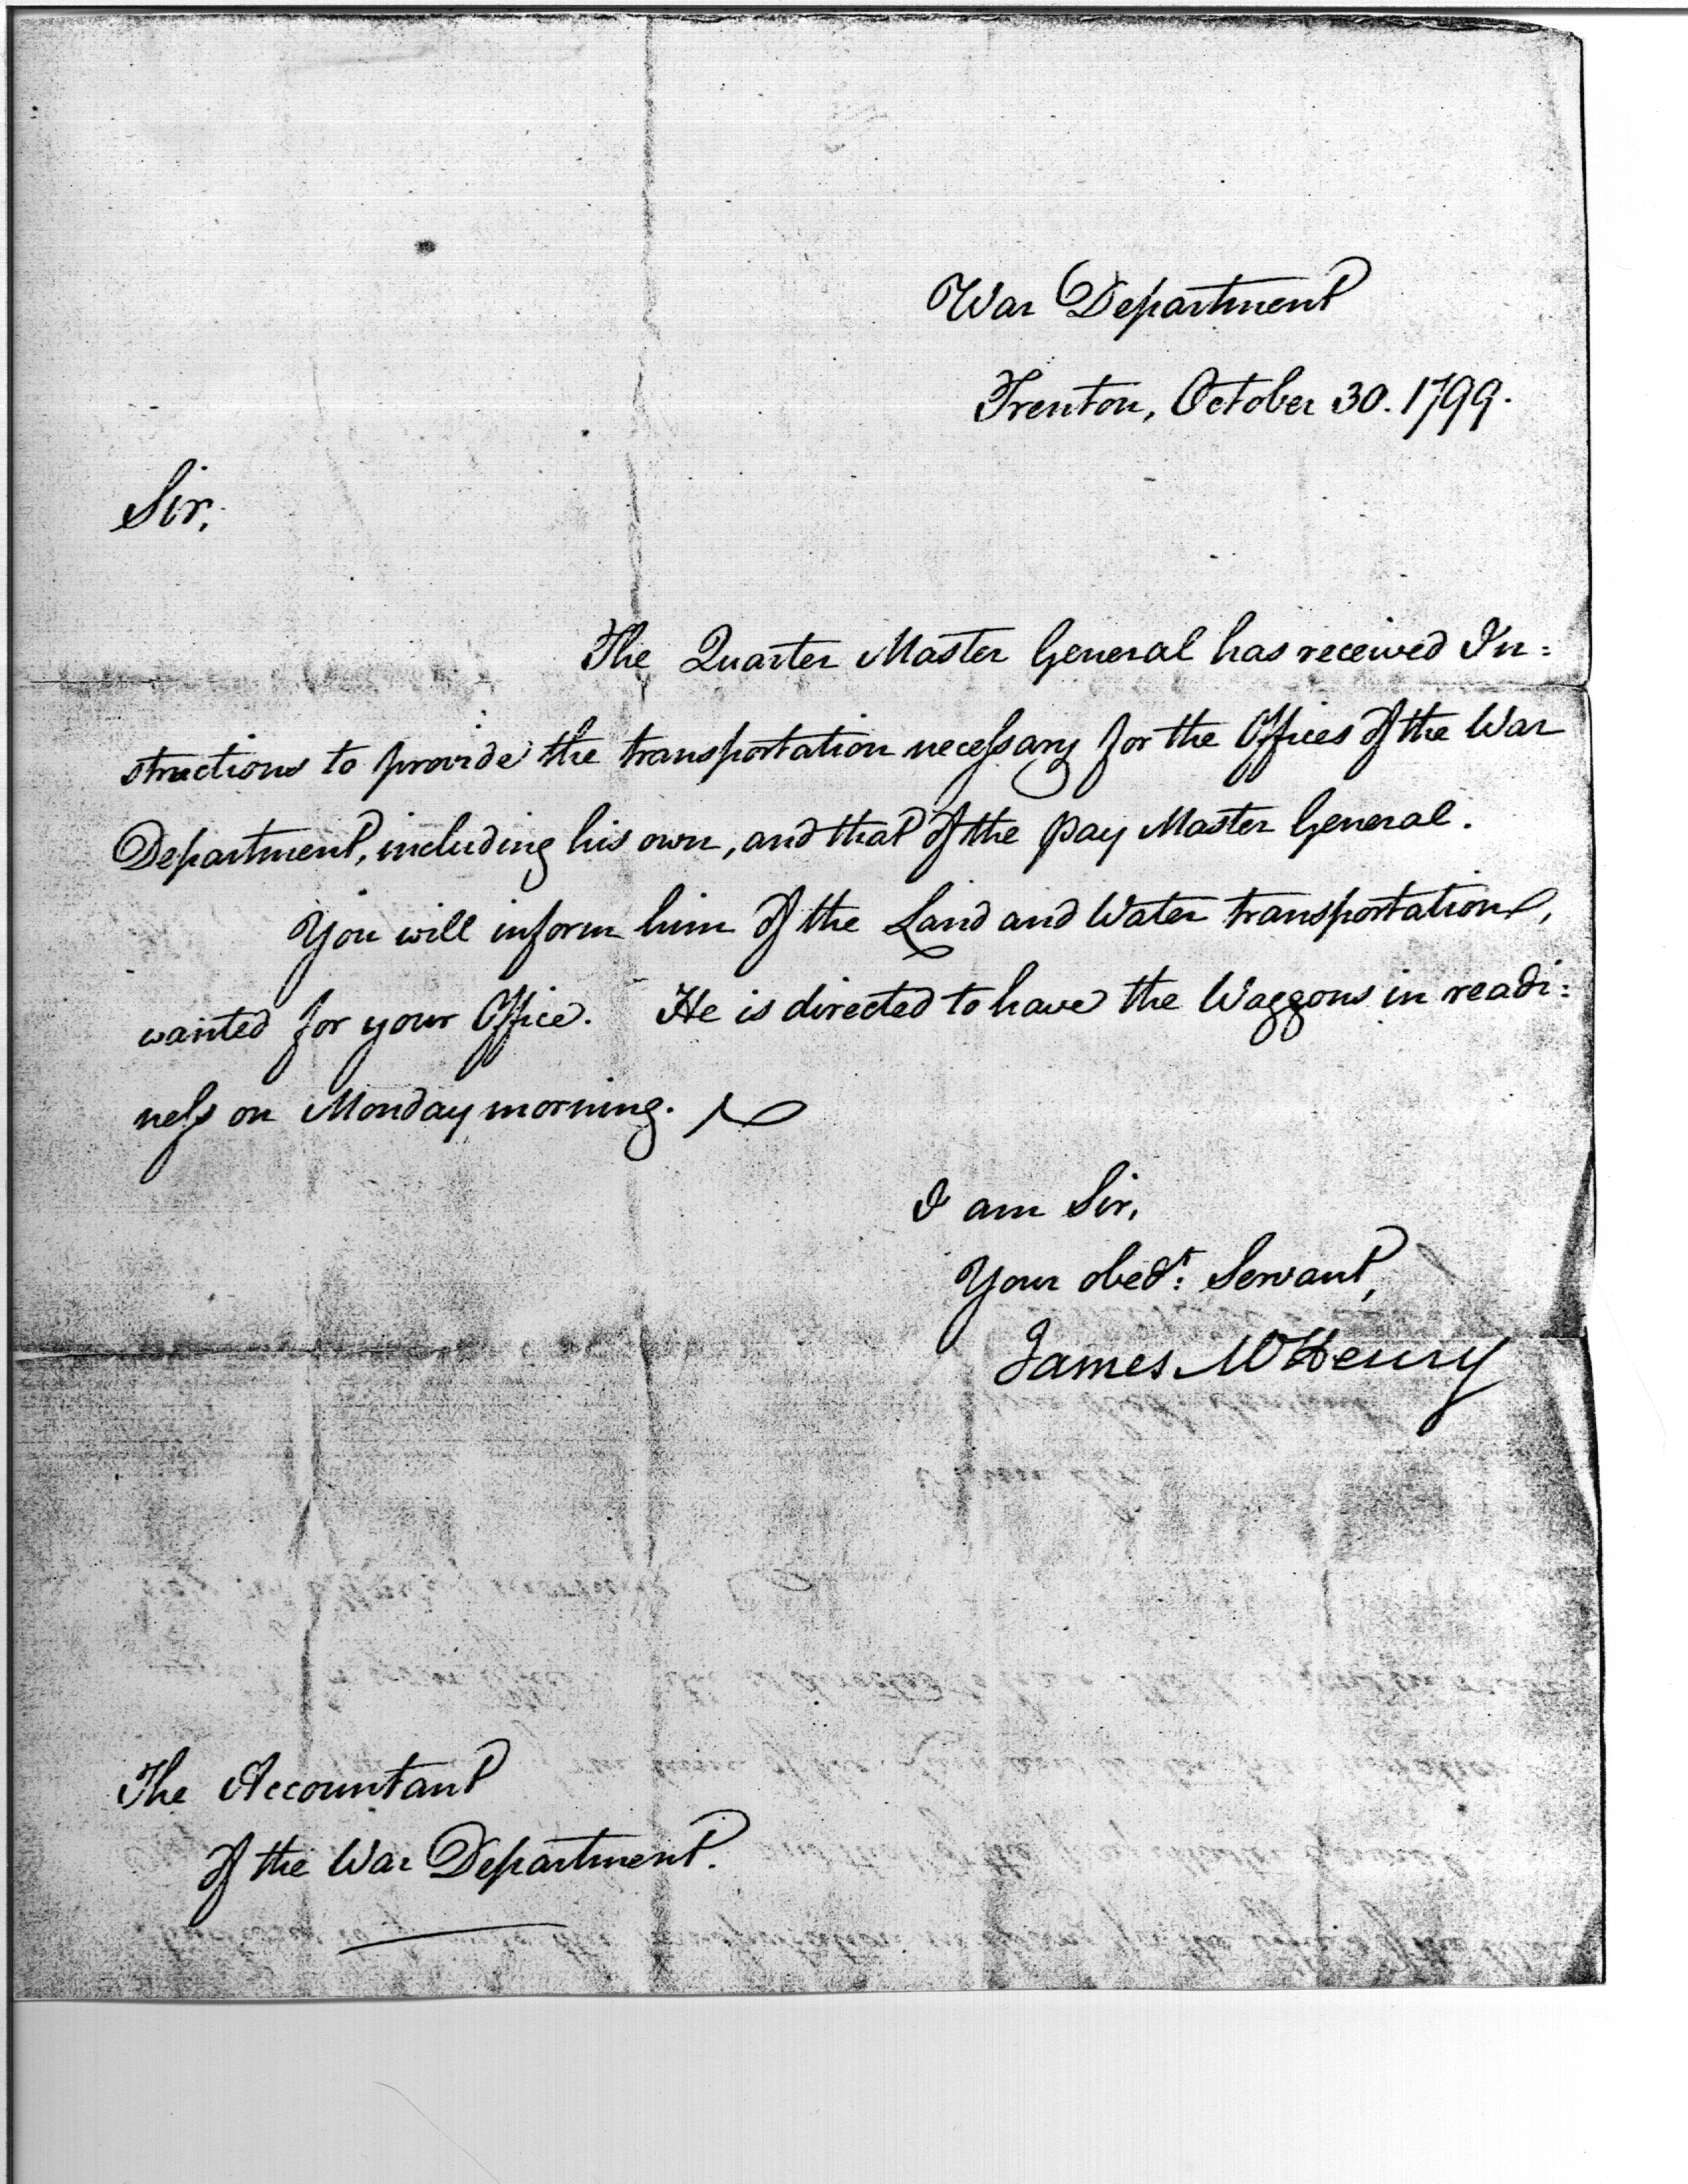 War Department
Trenton, October 30. 1799.
Sir,
The Quarter Master General has received In=
structions to provide the transportation necessary for the Offices of the War
Department, including his own, and that of the Pay Master General.
You will inform him of the Land and Water transportation,
wanted for your Office. He is directed to have the Waggons in readi=
ness on Monday morning.
I am Sir,
Your obedt: Servant,
James McHenry
The Accountant
of the War Department.